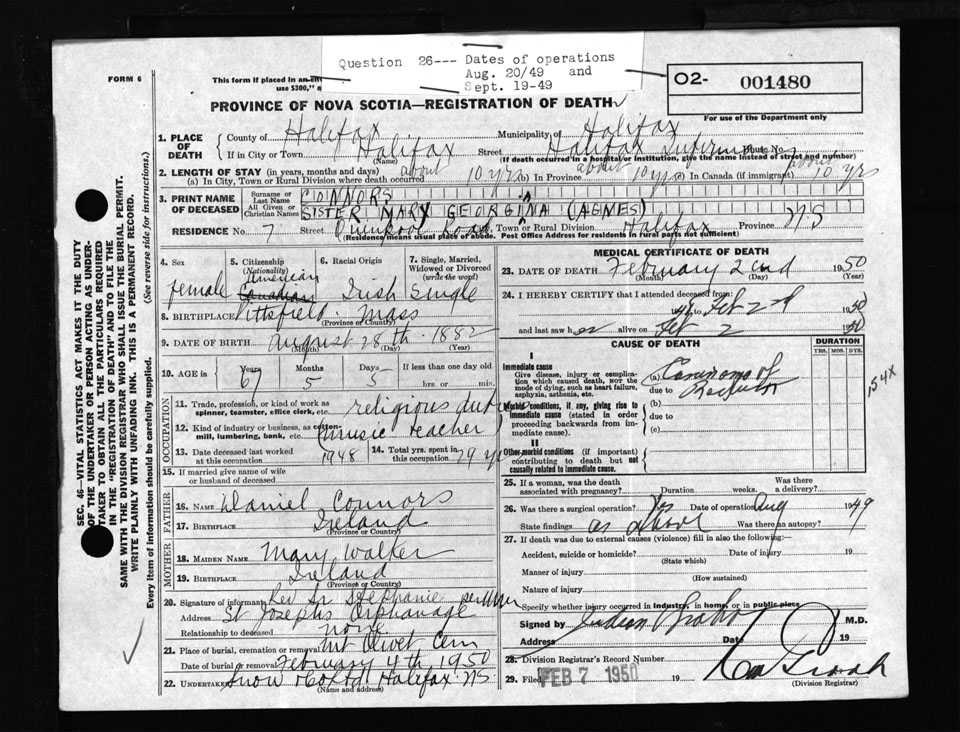 Question 26--- Dates of operations
Aug. 20/49 and
Sept. 19-49
FORM 6
This form if placed in an
use $300,"
O2- 001480
For use of the Department only
PROVINCE OF NOVA SCOTIA—REGISTRATION OF DEATH
1. PLACE OF DEATH
County of Halifax Municipality of Halifax
If in City or Town Halifax Street Halifax Infirmary Route No
(Name) (If death occurred in a hospital or institution, give the name instead of street and number)
2. LENGTH OF STAY (in years, months and days)
(a) In City, Town or Rural Division where death occurred about 10 yrs (b) In Province about 10 yrs (c) In Canada (if immigrant) about 10 yrs
3. PRINT NAME OF DECEASED
Surname or Last Name CONNORS
All Given or Christian Names SISTER MARY GEORGINA (AGNES)
RESIDENCE No. 7 Street Quinpool Road, City, Town or Rural Division Halifax Province N.S
(Residence means usual place of abode. Post Office Address for residents in rural parts not sufficient)
4. Sex female
5. Citizenship (Nationality) American Canadian
6. Racial Origin Irish
7. Single, Married, Widowed or Divorced (write the word) Single
8. BIRTHPLACE Pittsfield Mass
(Province or Country)
9. DATE OF BIRTH August 28th 1882
(Month) (Day) (Year)
10. AGE in Years 67 Months 5 Days 5 If less than one day old hrs. or min.
OCCUPATION
11. Trade, profession, or kind of work as spinner, teamster, office clerk, etc. religious duties
12. Kind of industry or business, as cotton-mill, lumbering, bank, etc. (music teacher)
13. Date deceased last worked at this occupation 1948
14. Total yrs. spent in this occupation 29 yrs
15. If married give name of wife or husband of deceased
FATHER
16. Name Daniel Connors
17. Birthplace Ireland
(Province or Country)
MOTHER
18. Maiden Name Mary Walker
19. Birthplace Ireland
(Province or Country)
20. Signature of informant Rev Sr Stephanie
Address St Josephs Orphanage
Relationship to deceased none
21. Place of burial, cremation or removal Mt Olivet Cem
Date of burial or removal February 4th 1950
22. Undertaker Snow & Co Ltd Halifax N.S
(Name and address)
MEDICAL CERTIFICATE OF DEATH
23. DATE OF DEATH February 2nd 1950
(Month) (Day) (Year)
24. I HEREBY CERTIFY that I attended deceased from:
to Feb 2nd 1950
and last saw her alive on Feb 2 1950
CAUSE OF DEATH
DURATION
YRS. MOS. DYS.
I
Immediate cause
Give disease, injury or complication which caused death, NOT the mode of dying, such as heart failure, asphyxia, asthenia, etc.
(a) Carcinoma of Rectum
due to
154X
Morbid conditions, if any, giving rise to immediate cause (stated in order proceeding backwards from immediate cause).
(b)
due to
(c)
II
Other morbid conditions (if important) contributing to death but not causally related to immediate cause.
25. If a woman, was the death associated with pregnancy? Duration weeks. Was there a delivery?
26. Was there a surgical operation? Yes Date of operation Aug 1949
State findings as above Was there an autopsy?
27. If death was due to external causes (violence) fill in also the following:
Accident, suicide or homicide? Date of injury 19
(State which)
Manner of injury
(How sustained)
Nature of injury
Specify whether injury occurred in industry, in home, or in public place
Signed by M.D.
Address Date 19
28. Division Registrar's Record Number
29. Filed FEB 7 1950 19
(Division Registrar)
SEC. 46—VITAL STATISTICS ACT MAKES IT THE DUTY
OF THE UNDERTAKER OR PERSON ACTING AS UNDER-
TAKER TO OBTAIN ALL THE PARTICULARS REQUIRED
IN THE "REGISTRATION OF DEATH" AND TO FILE THE
SAME WITH THE DIVISION REGISTRAR WHO SHALL ISSUE THE BURIAL PERMIT.
WRITE PLAINLY WITH UNFADING INK. THIS IS A PERMANENT RECORD.
Every item of information should be carefully supplied. (See reverse side for instructions.)